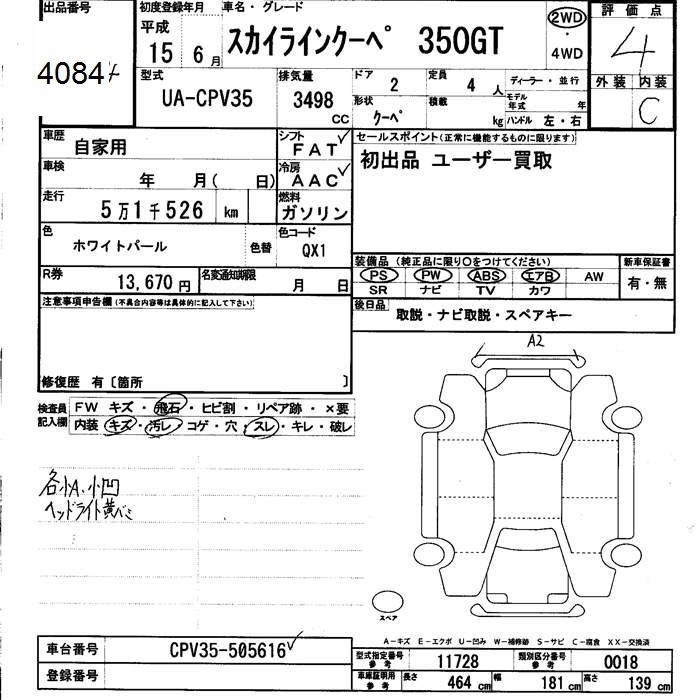 出品番号
4084
初度登録年月
平成
15 6月
車名・グレード
スカイラインクーペ 350GT
2WD
・
4WD
評価点
4
外装 内装
C
型式
UA-CPV35
排気量
3498
CC
ドア
2
定員
4 人
形状
クーペ
積載
kg
ディーラー・並行
モデル年式 年
ハンドル 左・右
車歴
自家用
シフト
FAT
車検
年 月( 日)
冷房
AAC
走行
5万1千526 km
燃料
ガソリン
色
ホワイトパール
色替
色コード
QX1
R券
13,670円
名変通知期限
月 日
セールスポイント(正常に機能するものに限ります)
初出品 ユーザー買取
装備品(純正品に限り○をつけてください)
PS PW ABS エアB AW
SR ナビ TV カワ
新車保証書
有・無
後日品
取説・ナビ取説・スペアキー
注意事項申告欄(不具合内容等は具体的に記入して下さい)
修復歴 有〔箇所 〕
検査員
記入欄
FW キズ・飛石・ヒビ割・リペア跡・×要
内装 キズ・汚レ・コゲ・穴・スレ・キレ・破レ
各小A、小凹
ヘッドライト黄バミ
A2
スペア
A-キズ E-エクボ U-凹み W-補修跡 S-サビ C-腐食 XX-交換済
車台番号
CPV35-505616
登録番号
型式指定番号
参考
11728
類別区分番号
参考
0018
車庫証明用
参考
長さ 464 cm 幅 181 cm 高さ 139 cm